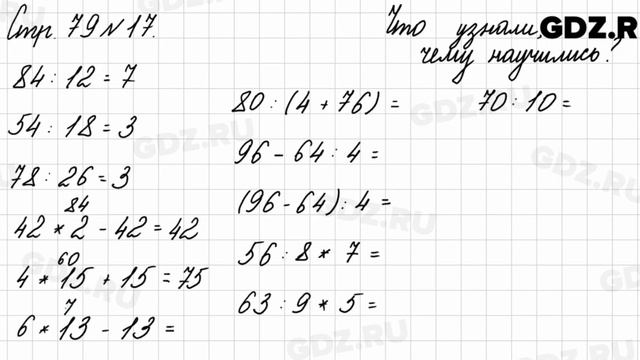 Стр. 79 № 17.
Что узнали,
чему научились?
GDZ.R
84 : 12 = 7
54 : 18 = 3
78 : 26 = 3
84
42 * 2 - 42 = 42
60
4 * 15 + 15 = 75
7
6 * 13 - 13 =
80 : (4 + 76) =
96 - 64 : 4 =
(96 - 64) : 4 =
56 : 8 * 7 =
63 : 9 * 5 =
70 : 10 =
GDZ.RU
GDZ.RU
GDZ.RU
GDZ.RU
GDZ.RU